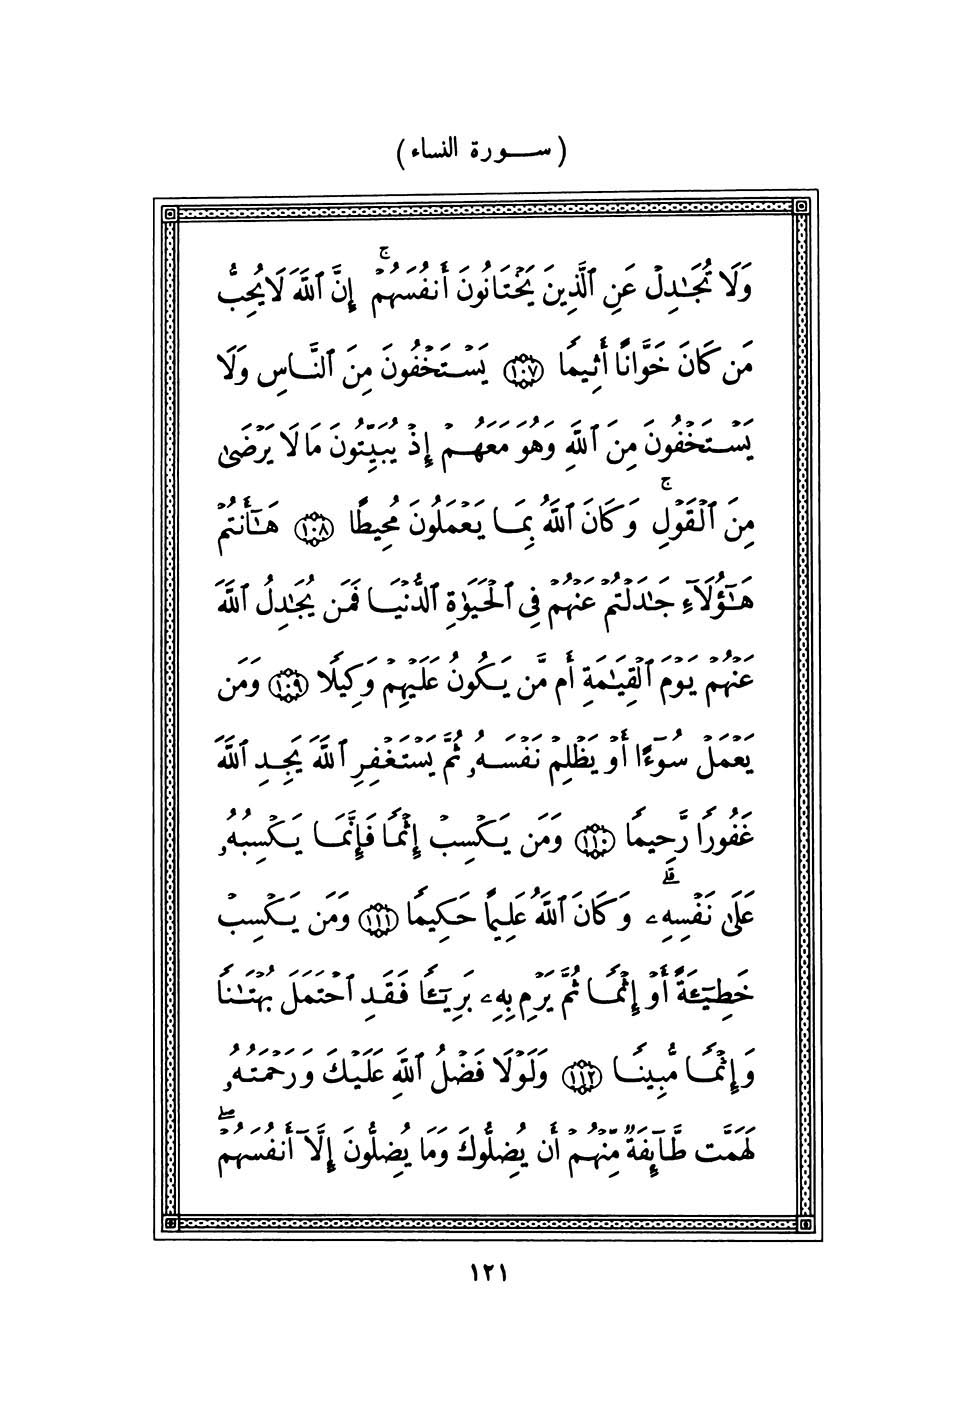 (ســورة النساء)
وَلَا تُجَٰدِلْ عَنِ ٱلَّذِينَ يَخْتَانُونَ أَنفُسَهُمْ ۚ إِنَّ ٱللَّهَ لَا يُحِبُّ
مَن كَانَ خَوَّانًا أَثِيمًا ١٠٧ يَسْتَخْفُونَ مِنَ ٱلنَّاسِ وَلَا
يَسْتَخْفُونَ مِنَ ٱللَّهِ وَهُوَ مَعَهُمْ إِذْ يُبَيِّتُونَ مَا لَا يَرْضَىٰ
مِنَ ٱلْقَوْلِ ۚ وَكَانَ ٱللَّهُ بِمَا يَعْمَلُونَ مُحِيطًا ١٠٨ هَٰٓأَنتُمْ
هَٰٓؤُلَآءِ جَٰدَلْتُمْ عَنْهُمْ فِى ٱلْحَيَوٰةِ ٱلدُّنْيَا فَمَن يُجَٰدِلُ ٱللَّهَ
عَنْهُمْ يَوْمَ ٱلْقِيَٰمَةِ أَم مَّن يَكُونُ عَلَيْهِمْ وَكِيلًا ١٠٩ وَمَن
يَعْمَلْ سُوٓءًا أَوْ يَظْلِمْ نَفْسَهُۥ ثُمَّ يَسْتَغْفِرِ ٱللَّهَ يَجِدِ ٱللَّهَ
غَفُورًا رَّحِيمًا ١١٠ وَمَن يَكْسِبْ إِثْمًا فَإِنَّمَا يَكْسِبُهُۥ
عَلَىٰ نَفْسِهِۦ ۚ وَكَانَ ٱللَّهُ عَلِيمًا حَكِيمًا ١١١ وَمَن يَكْسِبْ
خَطِيٓـَٔةً أَوْ إِثْمًا ثُمَّ يَرْمِ بِهِۦ بَرِيٓـًٔا فَقَدِ ٱحْتَمَلَ بُهْتَٰنًا
وَإِثْمًا مُّبِينًا ١١٢ وَلَوْلَا فَضْلُ ٱللَّهِ عَلَيْكَ وَرَحْمَتُهُۥ
لَهَمَّت طَّآئِفَةٌ مِّنْهُمْ أَن يُضِلُّوكَ وَمَا يُضِلُّونَ إِلَّآ أَنفُسَهُمْ ۖ
١٢١